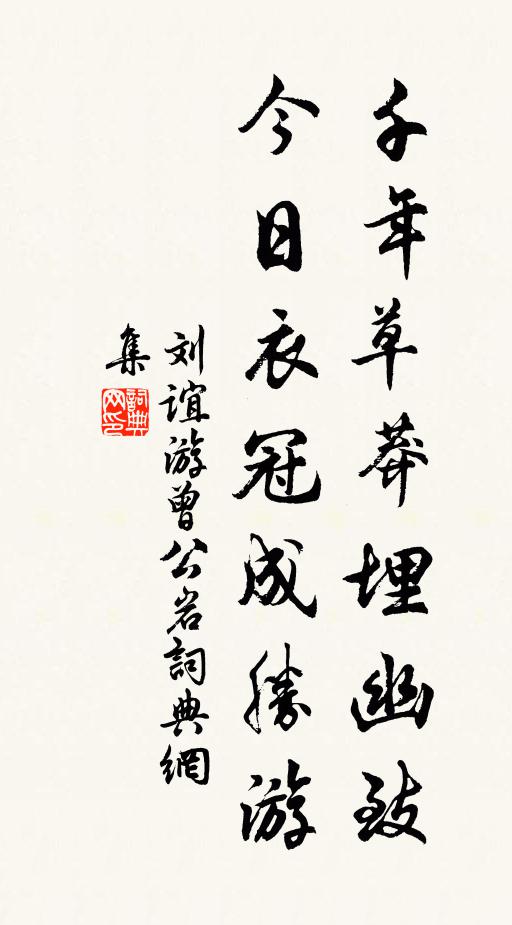 千年草莽埋幽致
今日衣冠成勝游
刘谊游曾公岩詞典網
集
詞典
网印